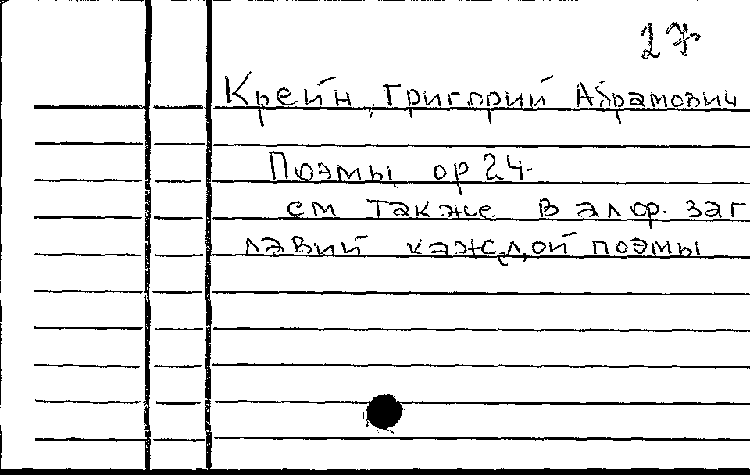 27
Крейн, Григорий Абрамович
Поэмы ор 24.
см также в алф. заг
лавий каждой поэмы